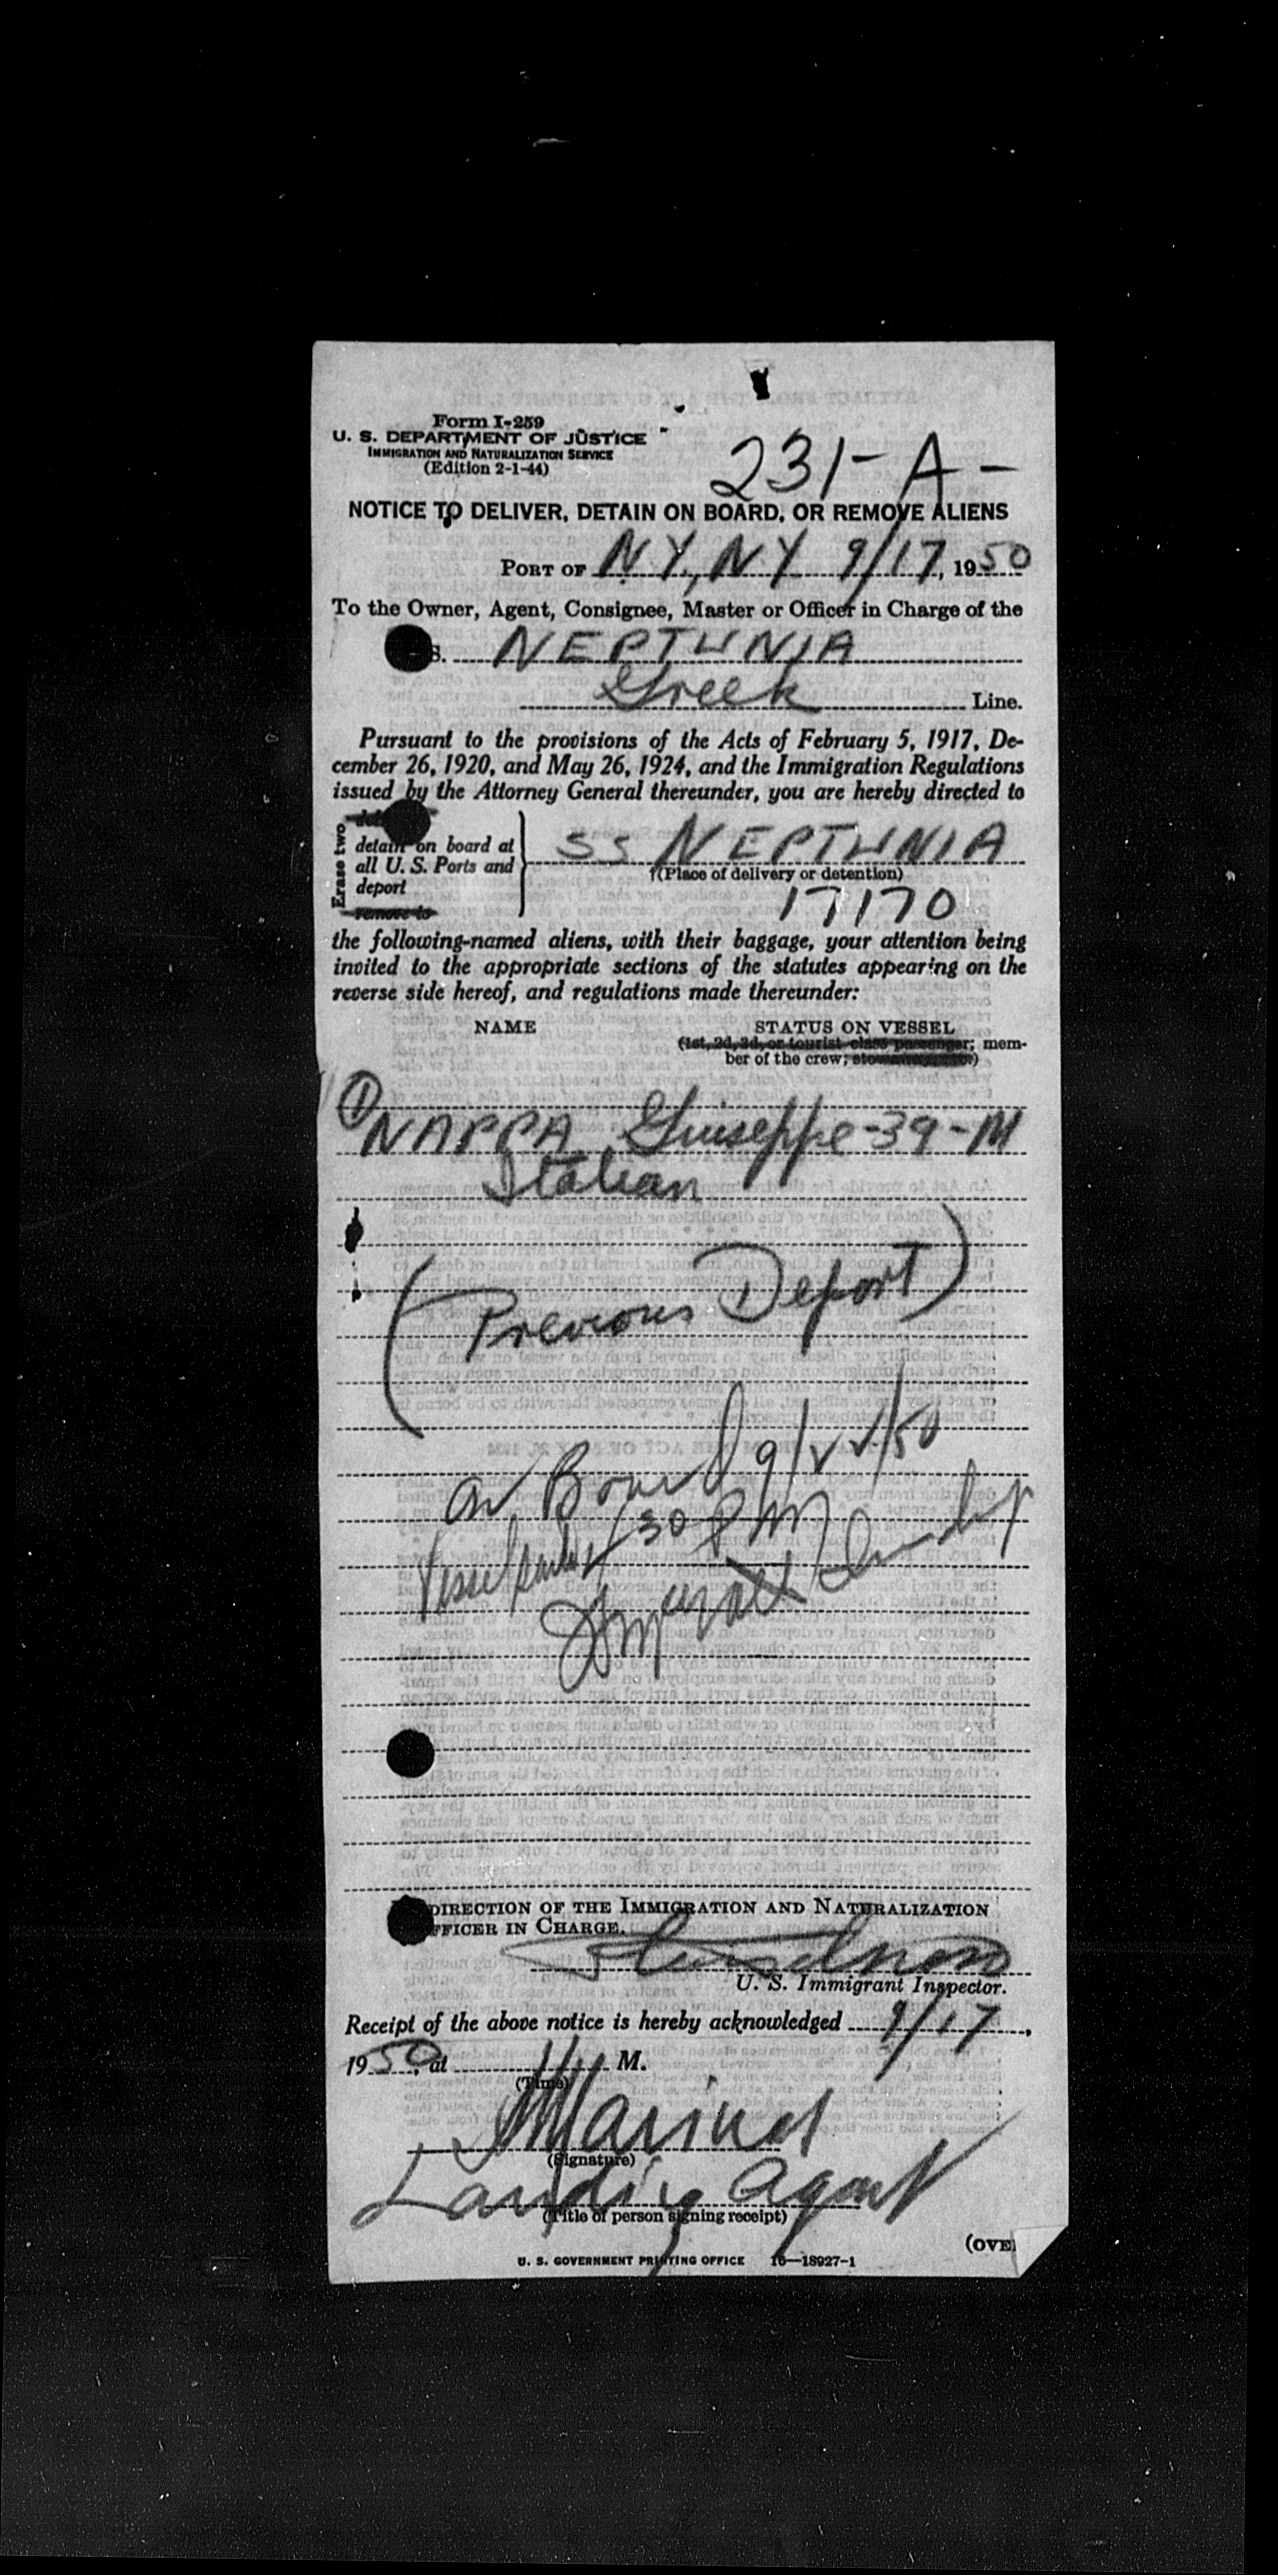 Form I-259
U. S. DEPARTMENT OF JUSTICE
IMMIGRATION AND NATURALIZATION SERVICE
(Edition 2-1-44)
231-A-
NOTICE TO DELIVER, DETAIN ON BOARD, OR REMOVE ALIENS
PORT OF N.Y., N.Y. 9/17, 1950
To the Owner, Agent, Consignee, Master or Officer in Charge of the
S. NEPTUNIA
Greek Line.
Pursuant to the provisions of the Acts of February 5, 1917, De-
cember 26, 1920, and May 26, 1924, and the Immigration Regulations
issued by the Attorney General thereunder, you are hereby directed to
Erase two
detain on board at
all U. S. Ports and
deport
remove to
SS NEPTUNIA
(Place of delivery or detention)
17170
the following-named aliens, with their baggage, your attention being
invited to the appropriate sections of the statutes appearing on the
reverse side hereof, and regulations made thereunder:
NAME STATUS ON VESSEL
(1st, 2d, 3d, or tourist class passenger; mem-
ber of the crew;
1
NAPPA Giuseppe-39-M
Italian
(Previous Deport)
on Board 9/22/50
Vessel 30 PM
DIRECTION OF THE IMMIGRATION AND NATURALIZATION
FFICER IN CHARGE.
U. S. Immigrant Inspector.
Receipt of the above notice is hereby acknowledged 9/17,
1950, at M.
(Time)
(Signature)
Landing Agent
(Title of person signing receipt)
(OVE
U. S. GOVERNMENT PRINTING OFFICE 16—18927-1